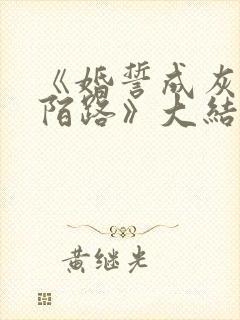 《婚誓成灰
陌路》大结
黄继光